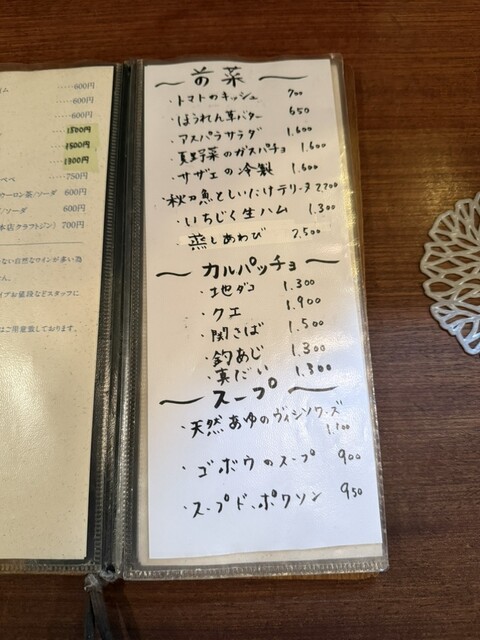 ‥‥‥600円
600円
600円
1800円
1500円
1300円
‥‥‥750円
ウーロン茶/ソーダ 600円
ソーダ 600円
本店(クラフトジン) 700円
ない自然なワインが多い為
イプお値段などスタッフに
はご用意致しております。
〜 前菜 〜
・トマトのキッシュ 700
・ほうれん草バター 650
・アスパラサラダ 1.600
・夏野菜のガスパチョ 1.600
・サザエの冷製 1.600
・秋刀魚としいたけテリーヌ 2.200
・いちじく生ハム 1.300
蒸しあわび 2.500
〜 カルパッチョ 〜
・地ダコ 1.300
・クエ 1.900
・関さば 1.500
・釣あじ 1.300
・真だい 1.300
〜 スープ 〜
・天然あゆのヴィシソワーズ
1.100
・ゴボウのスープ 900
・スープド、ポワソン 950